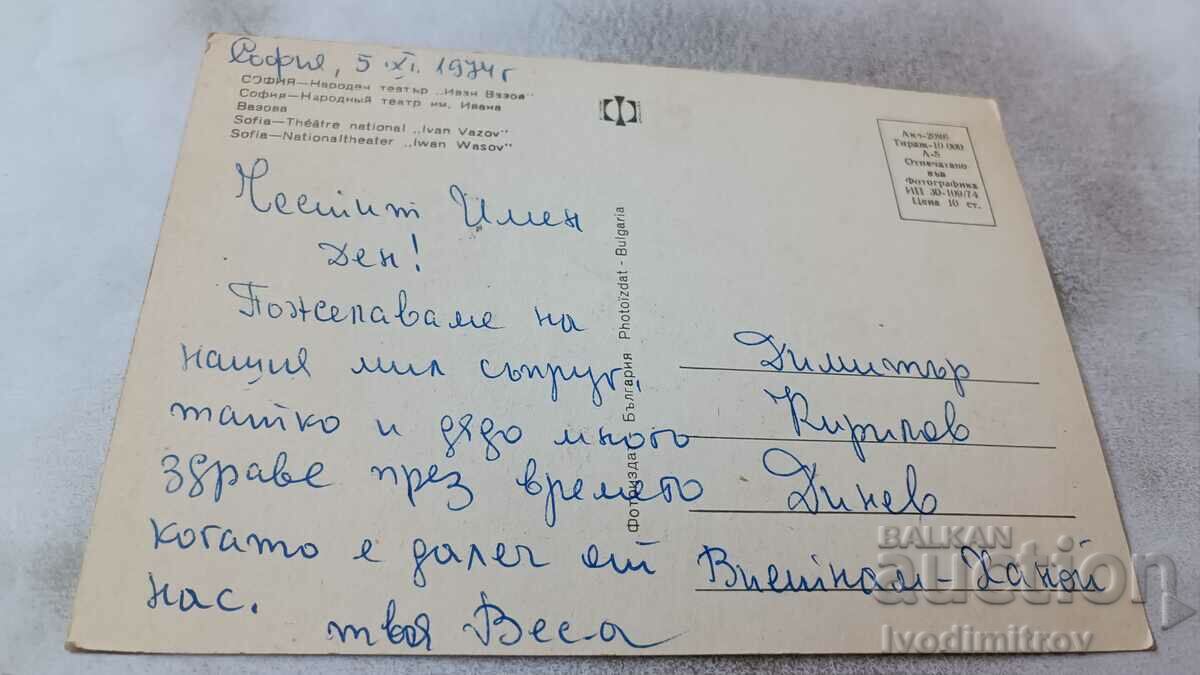 София, 5 XI. 1974 г
СОФИЯ—Народен театър „Иван Вазов"
София—Народный театр им. Ивана
Вазова
Sofia—Théâtre national „Ivan Vazov"
Sofia—Nationaltheater „Iwan Wasov"
Честит Имен
Ден!
Пожелаваме на
нашия мил съпруг,
татко и дядо много
здраве през времето
когато е далеч от
нас.
твоя Веса
Фотоиздат България Photoïzdat - Bulgaria
Тираж-10 000
А-5
Отпечатано
във
Фотографика
ИП 30-109/74
Цена 10 ст.
Димитър
Кирилов
Динев
Виетнам-Ханой
BALKAN
auction
Ivodimitrov